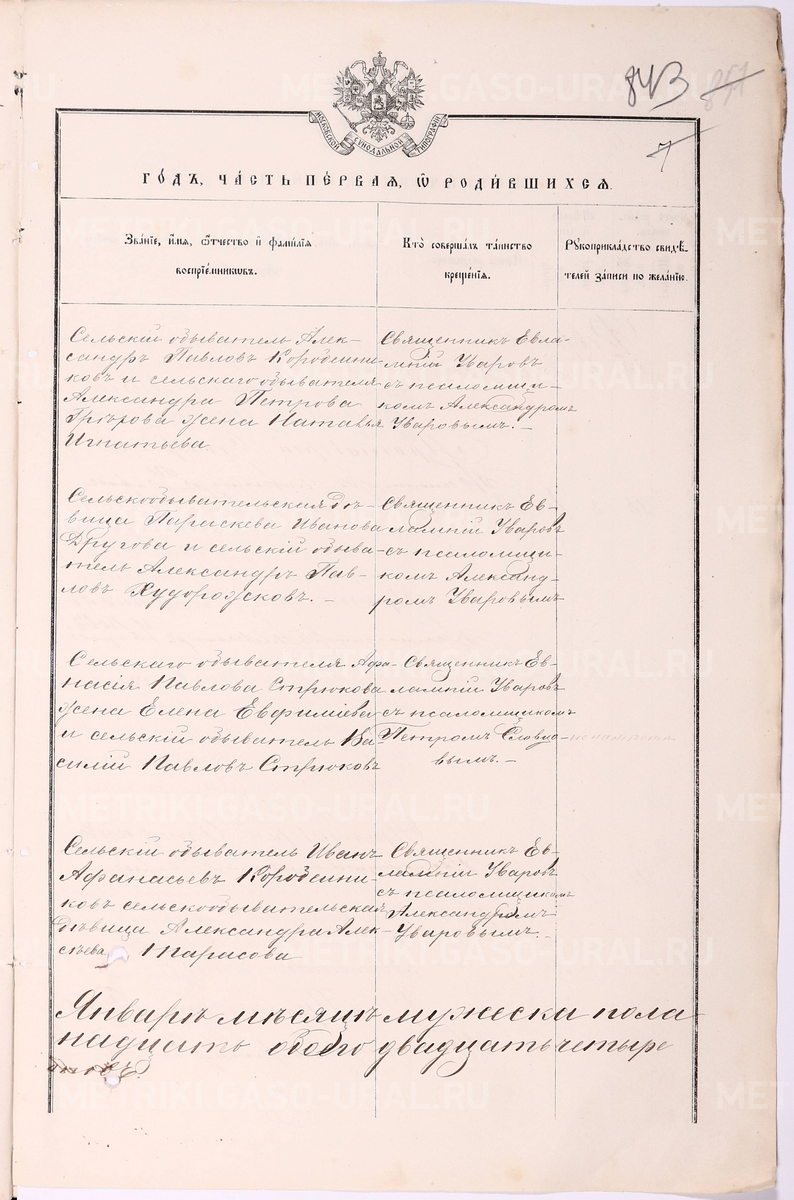 843
7
МОСКОВСКОЙ СѴНОДАЛЬНОЙ ТИПОГРАФІИ
ГО́ДЪ, ЧА́СТЬ ПЕ́РВАѦ, Ѡ҆ РОДИ́ВШИХСѦ.
Зва́нїе, и҆́мѧ, ѻ҆́тчество и҆ фами́лїѧ
воспрїе́мникѡвъ.
Кто̀ соверша́лъ та́инство
креще́нїѧ.
Рꙋкоприкла́дство свидѣ́-
телей за́писи по жела́нїю.
Сельскій обыватель Алек-
сандръ Павловъ Коробейни-
ковъ и сельскаго обывателя
Александра Петрова
жена Наталья
Игнатьева
Священникъ Евла-
мпій Уваровъ
съ псаломщи-
комъ Александромъ
Уваровымъ.-
Сельскообывательская дѣ-
вица Параскева Иванова
Другова и сельскій обыва-
тель Александръ Пав-
ловъ Худорожковъ. -
Священникъ Ев-
лампій Уваровъ
съ псаломщи-
комъ Александ-
ромъ Уваровымъ
Сельскаго обывателя Афа-
насія Павлова Стрюкова
жена Елена Евфиміева
и сельскій обыватель Ва-
силій Павловъ Стрюковъ
Священникъ Ев-
лампій Уваровъ
съ псаломщикомъ
Петромъ Словцо-
вымъ.-
Сельскій обыватель Иванъ
Афанасьевъ Коробейни-
ковъ сельскообывательская
дѣвица Александра Алек-
сѣева Тарасова
Священникъ Ев-
лампій Уваровъ
съ псаломщикомъ
Александромъ
Уваровымъ.-
Январѣ мѣсяцѣ мужеска пола
надцать обоего двадцать четыре
METRIKI.GASO-URAL.RU